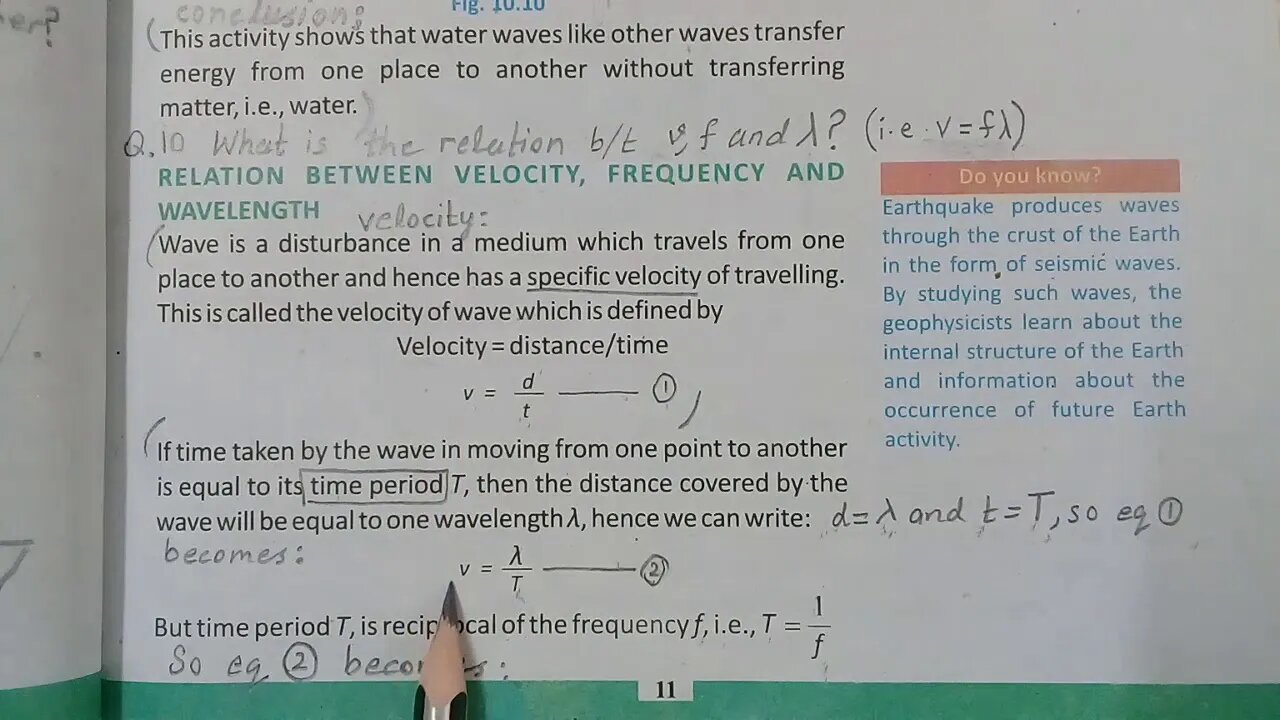 Fig. 10.10
conclusion:
(This activity shows that water waves like other waves transfer
energy from one place to another without transferring
matter, i.e., water.)
Q.10 What is the relation b/t v, f and λ? (i.e. v=fλ)
RELATION BETWEEN VELOCITY, FREQUENCY AND
WAVELENGTH velocity:
(Wave is a disturbance in a medium which travels from one
place to another and hence has a specific velocity of travelling.
This is called the velocity of wave which is defined by
Velocity = distance/time
v = d/t —— ①)
(If time taken by the wave in moving from one point to another
is equal to its time period T, then the distance covered by the
wave will be equal to one wavelength λ, hence we can write: d=λ and t=T, so eq ①
becomes:
v = λ/T —— ②
But time period T, is reciprocal of the frequency f, i.e., T = 1/f
So eq ② becomes:
11
Do you know?
Earthquake produces waves
through the crust of the Earth
in the form of seismic waves.
By studying such waves, the
geophysicists learn about the
internal structure of the Earth
and information about the
occurrence of future Earth
activity.